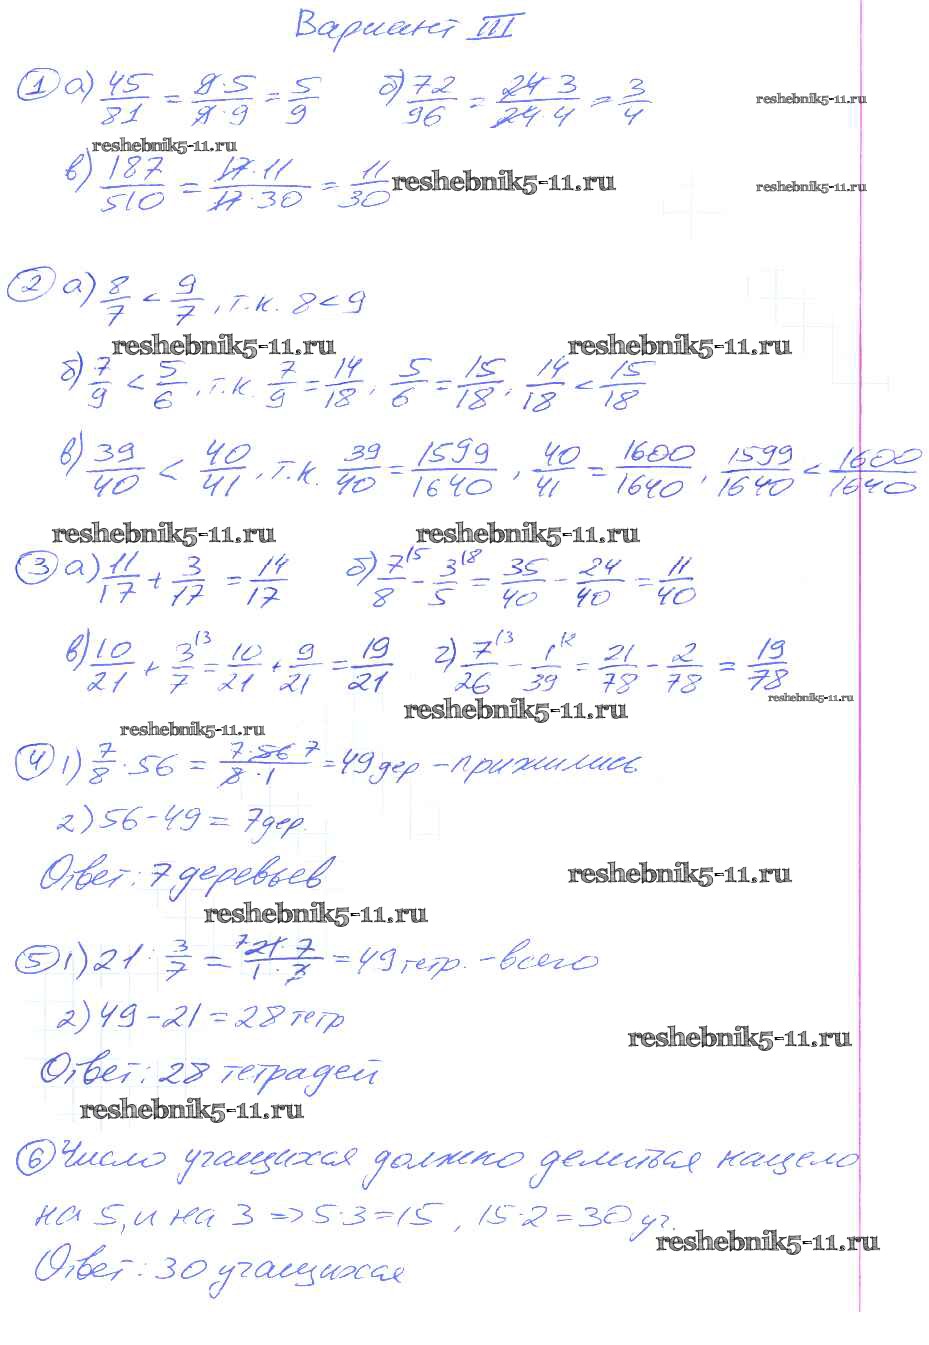 Вариант III
① а) 45/81 = (9·5)/(9·9) = 5/9   б) 72/96 = (24·3)/(24·4) = 3/4
reshebnik5-11.ru
reshebnik5-11.ru
в) 187/510 = (17·11)/(17·30) = 11/30
reshebnik5-11.ru
reshebnik5-11.ru
② а) 8/7 < 9/7, т.к. 8 < 9
reshebnik5-11.ru
reshebnik5-11.ru
б) 7/9 < 5/6, т.к. 7/9 = 14/18, 5/6 = 15/18, 14/18 < 15/18
в) 39/40 < 40/41, т.к. 39/40 = 1599/1640, 40/41 = 1600/1640, 1599/1640 < 1600/1640
reshebnik5-11.ru
reshebnik5-11.ru
③ а) 11/17 + 3/17 = 14/17   б) 7/8 |5 - 3/5 |8 = 35/40 - 24/40 = 11/40
в) 10/21 + 3/7 |3 = 10/21 + 9/21 = 19/21   г) 7/26 |3 - 1/39 |2 = 21/78 - 2/78 = 19/78
reshebnik5-11.ru
reshebnik5-11.ru
reshebnik5-11.ru
④ 1) 7/8 · 56 = (7·56 7)/(8·1) = 49 дер - прижились
2) 56 - 49 = 7 дер.
Ответ: 7 деревьев
reshebnik5-11.ru
reshebnik5-11.ru
⑤ 1) 21 : 3/7 = (7 21·7)/(1·3) = 49 тетр. - всего
2) 49 - 21 = 28 тетр
reshebnik5-11.ru
Ответ: 28 тетрадей
reshebnik5-11.ru
⑥ Число учащихся должно делиться нацело
на 5, и на 3 => 5·3=15, 15·2=30 уч.
reshebnik5-11.ru
Ответ: 30 учащихся